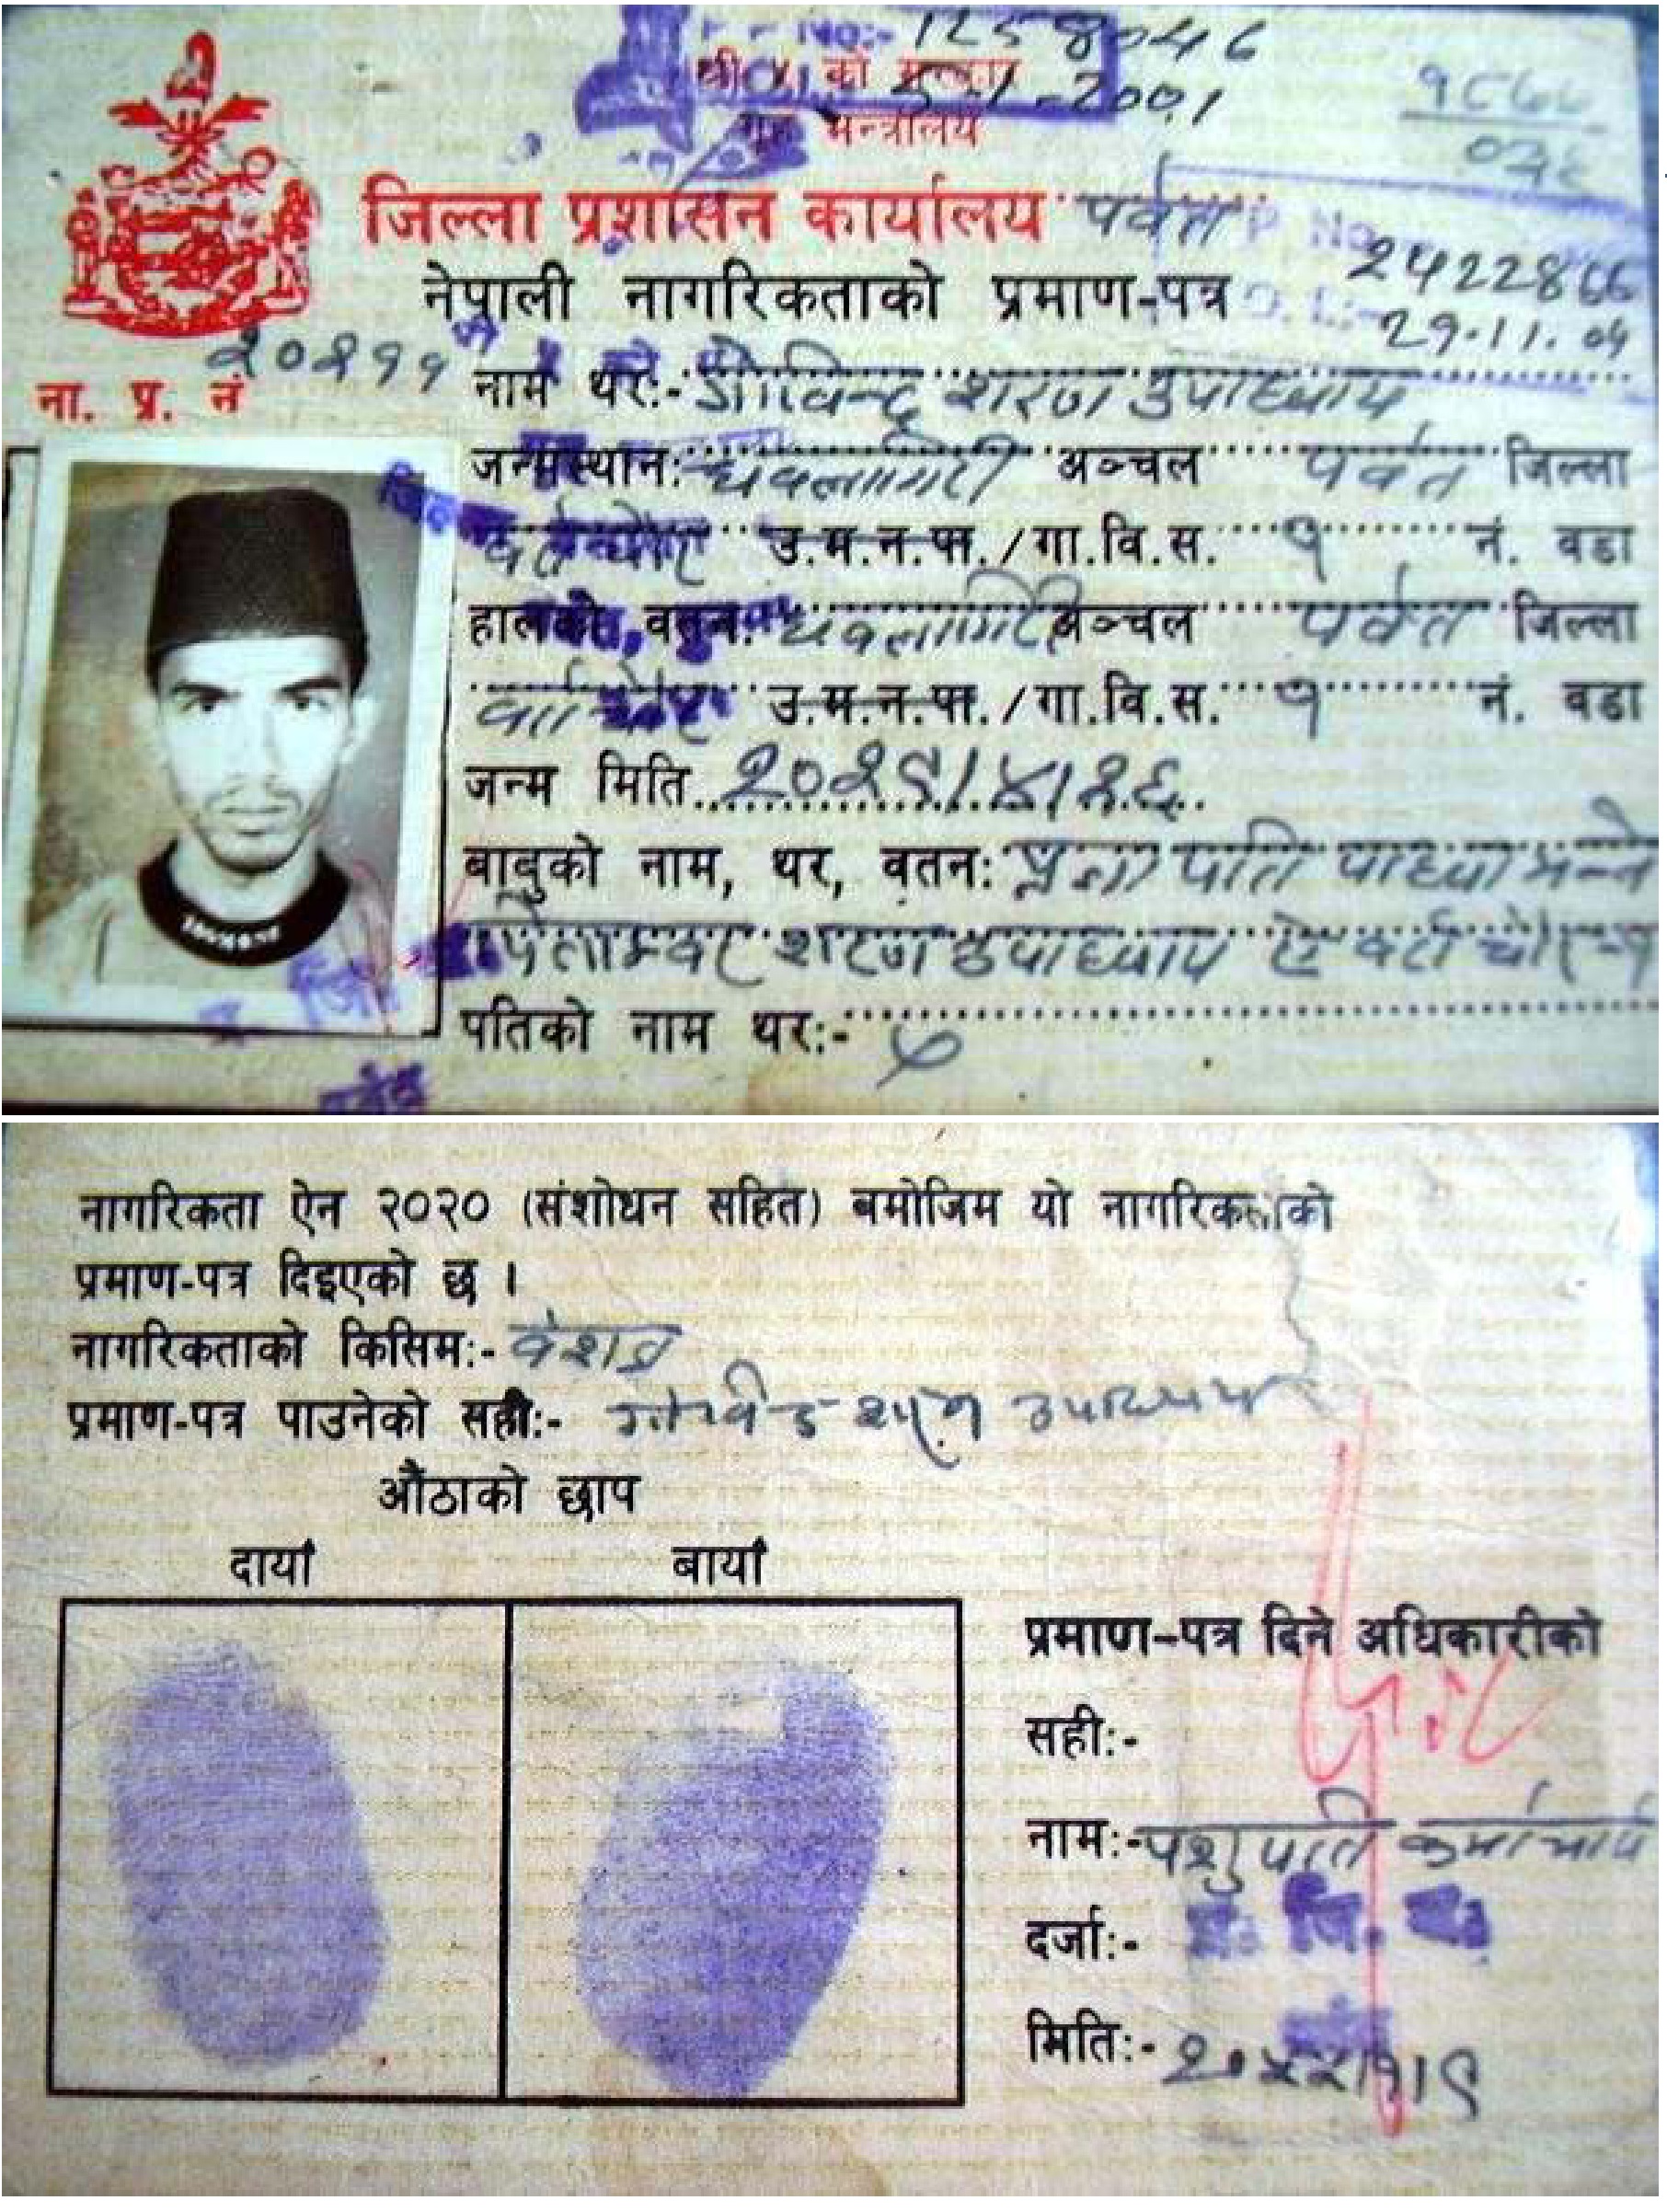 No:- 1258046
श्री ५ को सरकार
5-1-2001
गृह मन्त्रालय
जिल्ला प्रशासन कार्यालय पर्वत
P No 2422866
नेपाली नागरिकताको प्रमाण-पत्र
29.11.04
ना. प्र. नं २०२११
नाम थर:- गोविन्द शरण उपाध्याय
जन्मस्थान: धवलागिरी अञ्चल पर्वत जिल्ला
उ.म.न.पा./गा.वि.स. १ नं. वडा
हालको वतन: धवलागिरी अञ्चल पर्वत जिल्ला
उ.म.न.पा./गा.वि.स. १ नं. वडा
जन्म मिति २०२९।४।२६
बाबुको नाम, थर, वतन: पति पाध्या भन्ने
शरण उपाध्याय ऐ
पतिको नाम थर:-
पर्वत
नागरिकता ऐन २०२० (संशोधन सहित) बमोजिम यो नागरिकताको
प्रमाण-पत्र दिइएको छ ।
नागरिकताको किसिम:- वंशज
प्रमाण-पत्र पाउनेको सही:- गोविन्द शरण उपाध्याय
औंठाको छाप
दायाँ बायाँ
प्रमाण-पत्र दिने अधिकारीको
सही:-
नाम:- पशुपति
दर्जा:- प्र. जि. अ.
मिति:-